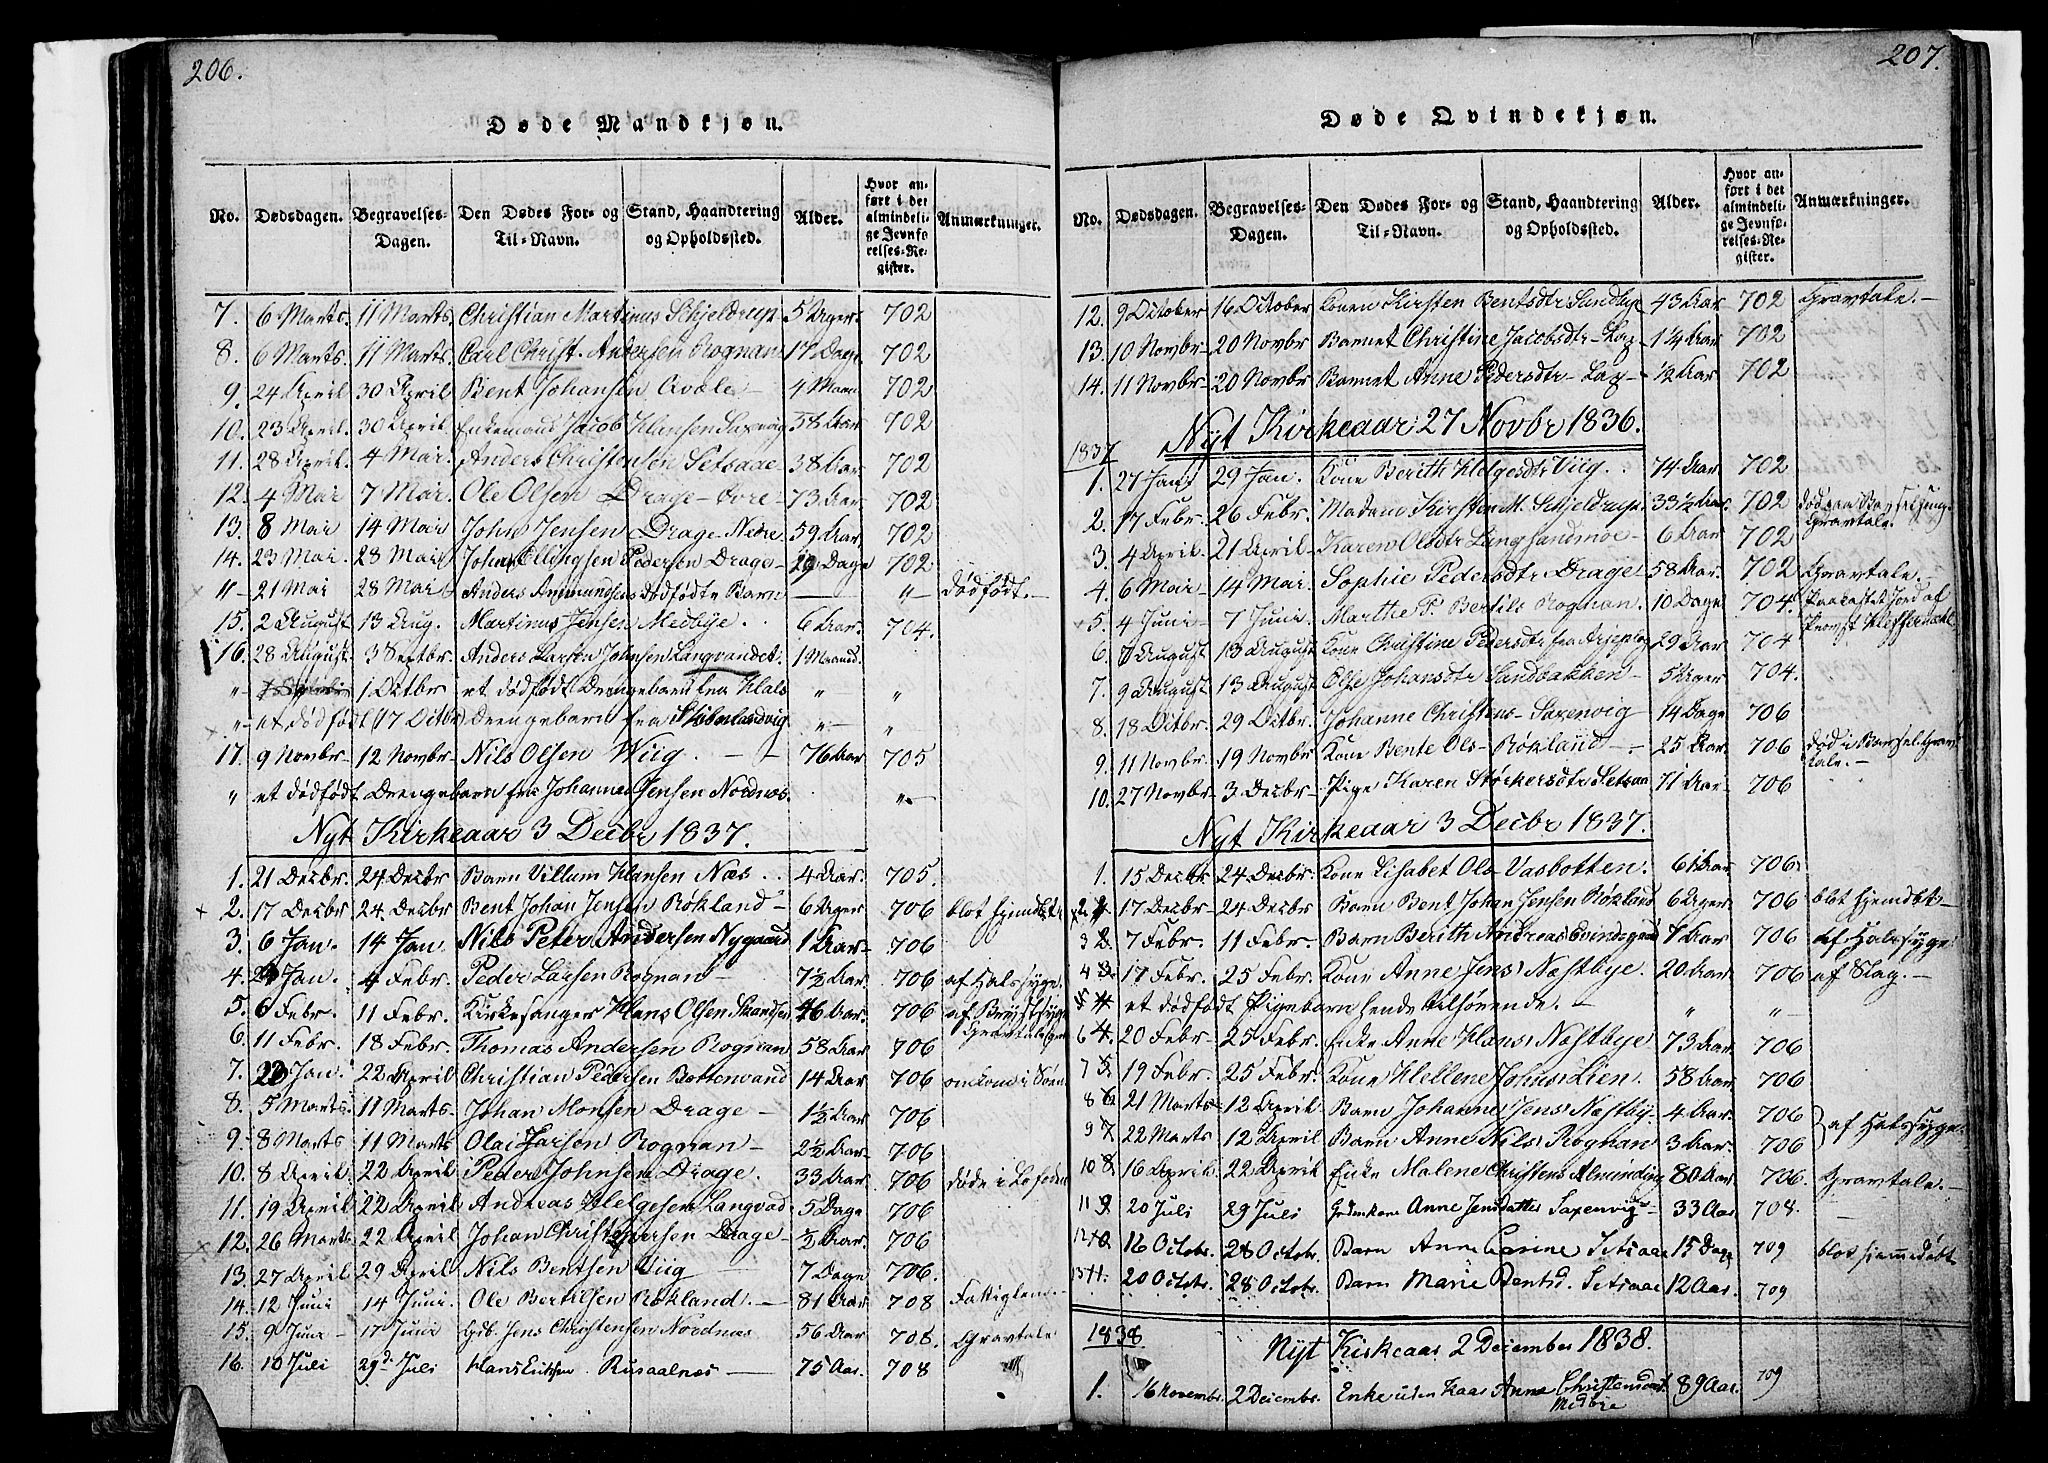 206.
Døde Mandkjøn.
No. Dødsdagen. Begravelses-Dagen. Den Dødes For- og Til-Navn. Stand, Haandtering og Opholdssted. Alder. Hvor anført i det almindelige Jevnførelses-Register. Anmærkninger.
7. 6 Marts. 11 Marts. Christian Martinus Schjeldrup 5 Uger. 702
8. 6 Marts. 11 Marts. Carl Christ. Andersen Rognan 17 Dage 702
9. 24 April 30 April Bent Johansen Qvale 4 Maan 702
10. 23 April. 30 April Enkemand Jacob Hansen Saxevig 58 Aar 702
11. 28 April. 4 Mai. Anders Christensen Setsaae 38 Aar. 702
12. 4 Mai 7 Mai. Ole Olsen Drage 73 Aar. 702
13. 8 Mai 14 Mai John Jensen Drage Nedre 59 Aar, 702
14. 23 Mai. 28 Mai. Johan Ellingsen Pedersen Drage 29 Dage 702
" 21 Mai 28 Mai Anders Ammundsens dødfødte Barn — " dødfødt.
15. 2 August 13 Aug. Martinus Jensen Medbye. 6 Aar. 704.
16. 28 August. 3 Septbr. Anders Larsen Johnsen Langvandet. 1 Maaned.
" 1 Octbr et dødfødt Drengebarn fra Hals " "
" et dødfødt (17 Octbr) Drengebarn fra Skiberlandvig " "
17. 9 Novbr 12 Novbr Nils Olsen Wiig. 76 Aar 705
" et dødfødt Drengebarn fra Johannes Jensen Nordnæs. "
Nyt Kirkeaar 3 Decbr 1837.
1. 21 Decbr. 24 Decbr Barn Villum Hansen Næs 4 Aar. 705.
2. 17 Decbr 24 Decbr Bent Johan Jensen Røkland 6 Uger 706 blot hjemdøbt
3. 6 Jan. 14 Jan. Nils Peter Andersen Nygaard 1 Aar 706
4. Jan. 4 Febr. Peder Larsen Rognan 7½ Aar. 706 af Halssyge.
5. 6 Febr. 11 Febr. Kirkesanger Hans Olsen 46 Aar. 706 af Brystsyge
6. 11 Febr. 18 Febr. Thomas Andersen Rognan 58 Aar 706
7. 23 Jan. 22 April Christian Pedersen Bottenvand 14 Aar 706 omkom i Søen
8. 5 Marts. 11 Marts. Johan Monsen Drage 1½ Aar. 706
9. 8 Marts 11 Marts Olai Larson Rognan 2½ Aar 706
10. 8 April. 22 April Peder Johnsen Drage. 33 Aar. 706 døde i Lofoden
11. 19 April 22 April Andreas Helgesen Langvad 5 Dage 706
12. 26 Marts. 22 April Johan Christophersen Drage ½ Aar. 706
13. 27 April 29 April Nils Bentsen Viig 7 Dage 706.
14. 12 Juni 14 Juni. Ole Bertilsen Røkland. 81 Aar 708 Fattiglem
15. 9 Juni 17 Juni Gdb. Jens Christensen Nordnæs 56 Aar 708. Gravtale
16. 10 Juli 29d Juli Hans Eriksen Rusaalnæs 75 Aar. 708
207.
Døde Qvindekjøn.
No. Dødsdagen. Begravelses-Dagen. Den Dødes For- og Til-Navn. Stand, Haandtering og Opholdssted. Alder. Hvor anført i det almindelige Jevnførelses-Register. Anmærkninger.
12. 9 October 16 October Konen Kirsten Bentsdtr Sundbye 43 Aar 702 Gravtale.
13. 10 Novbr 20 Novbr Barnet Christine Jacobsdtr 1¼ Aar 702
14. 11 Novbr 20 Novbr Barnet Anne Pedersdtr ½ Aar 702
Nyt Kirkeaar: 27 Novbr 1836.
1837
1. 27 Jan. 29 Jan. Kone Berith Helgesdtr Viig. 74 Aar 702
2. 17 Febr. 26 Febr. Madame Kirsten M. Schjeldrup. 33½ Aar. 702 Gravtale.
3. 4 April. 21 April Karen Olsdtr Langsandmoe 6 Aar 702
4. 6 Mai 14 Mai. Sophie Pedersdtr Drage 58 Aar. 702 Gravtale.
5. 4 Juni 7 Juni. Marthe P. Bertils Rognan. 10 Dage 704. Paakastet Jord af Provst
6. 7 August 13 August Kone Christine Pedersdtr fra Arjeplog 29 Aar 704
7. 9 August 13 August Else Johansdtr Sandbakken 5 Uger 704.
8. 18 Octbr. 29 Octbr. Johanne Christens Saxenvig 14 Dage 706
9. 11 Novbr. 19 Novbr Kone Bente Ols Røkland 25 Aar. 706 død i Barsel. Gravtale.
10. 27 Novbr 3 Decbr Pige Karen Størkersdtr Setsaa 71 Aar 706
Nyt Kirkeaar 3 Decbr 1837.
1. 15 Decbr 24 Decbr. Kone Lisabet Ols Vasbotten. 61 Aar 706.
2 17 Decbr 24 Decbr Barn Bent Johan Jensen Røkland 6 Uger 706 blot hjemdøbt
3 7 Febr. 11 Febr. Barn Berith Andreas Evindsgaard 1 Aar 706 af Halssyge
4 17 Febr. 25 Febr. Kone Anne Jens Næstbye. 20 Aar 706 af Slag.
5 et dødfødt Pigebarn hende tilhørende. " "
6 20 Febr. 25 Febr. Enke Anne Hans Næstbye 73 Aar 706
7 19 Febr. 25 Febr. Kone Hellene Johns Lien. 58 Aar 706
8 21 Marts 12 April Barn Johanne Jens Næstby. 4 Aar. 706
9 22 Marts 12 April Barn Anne Nils Rognan 3 Aar. 706 af Halssyge
10 16 April. 22 April Enke Malene Christens Almindig 80 Aar 706. Gravtale.
11 20 Juli 29 Juli Gdmkone Anne Jensdatter Saxenvig 33 Aar 708.
12 16 Octobr. 28 Octobr. Barn Anne Carine Setsaae 15 Dage 709 blot hjemmedøbt
13 20 Octobr. 28 Octobr. Barn Marie Bentsd. Setsaae 12 Aar. 709
1838 Nyt Kirkeaar 2 December 1838.
1. 16 Novembr. 2 Decembr. Enke uden Kaar Anna Christensdat. Medbye 89 Aar. 709